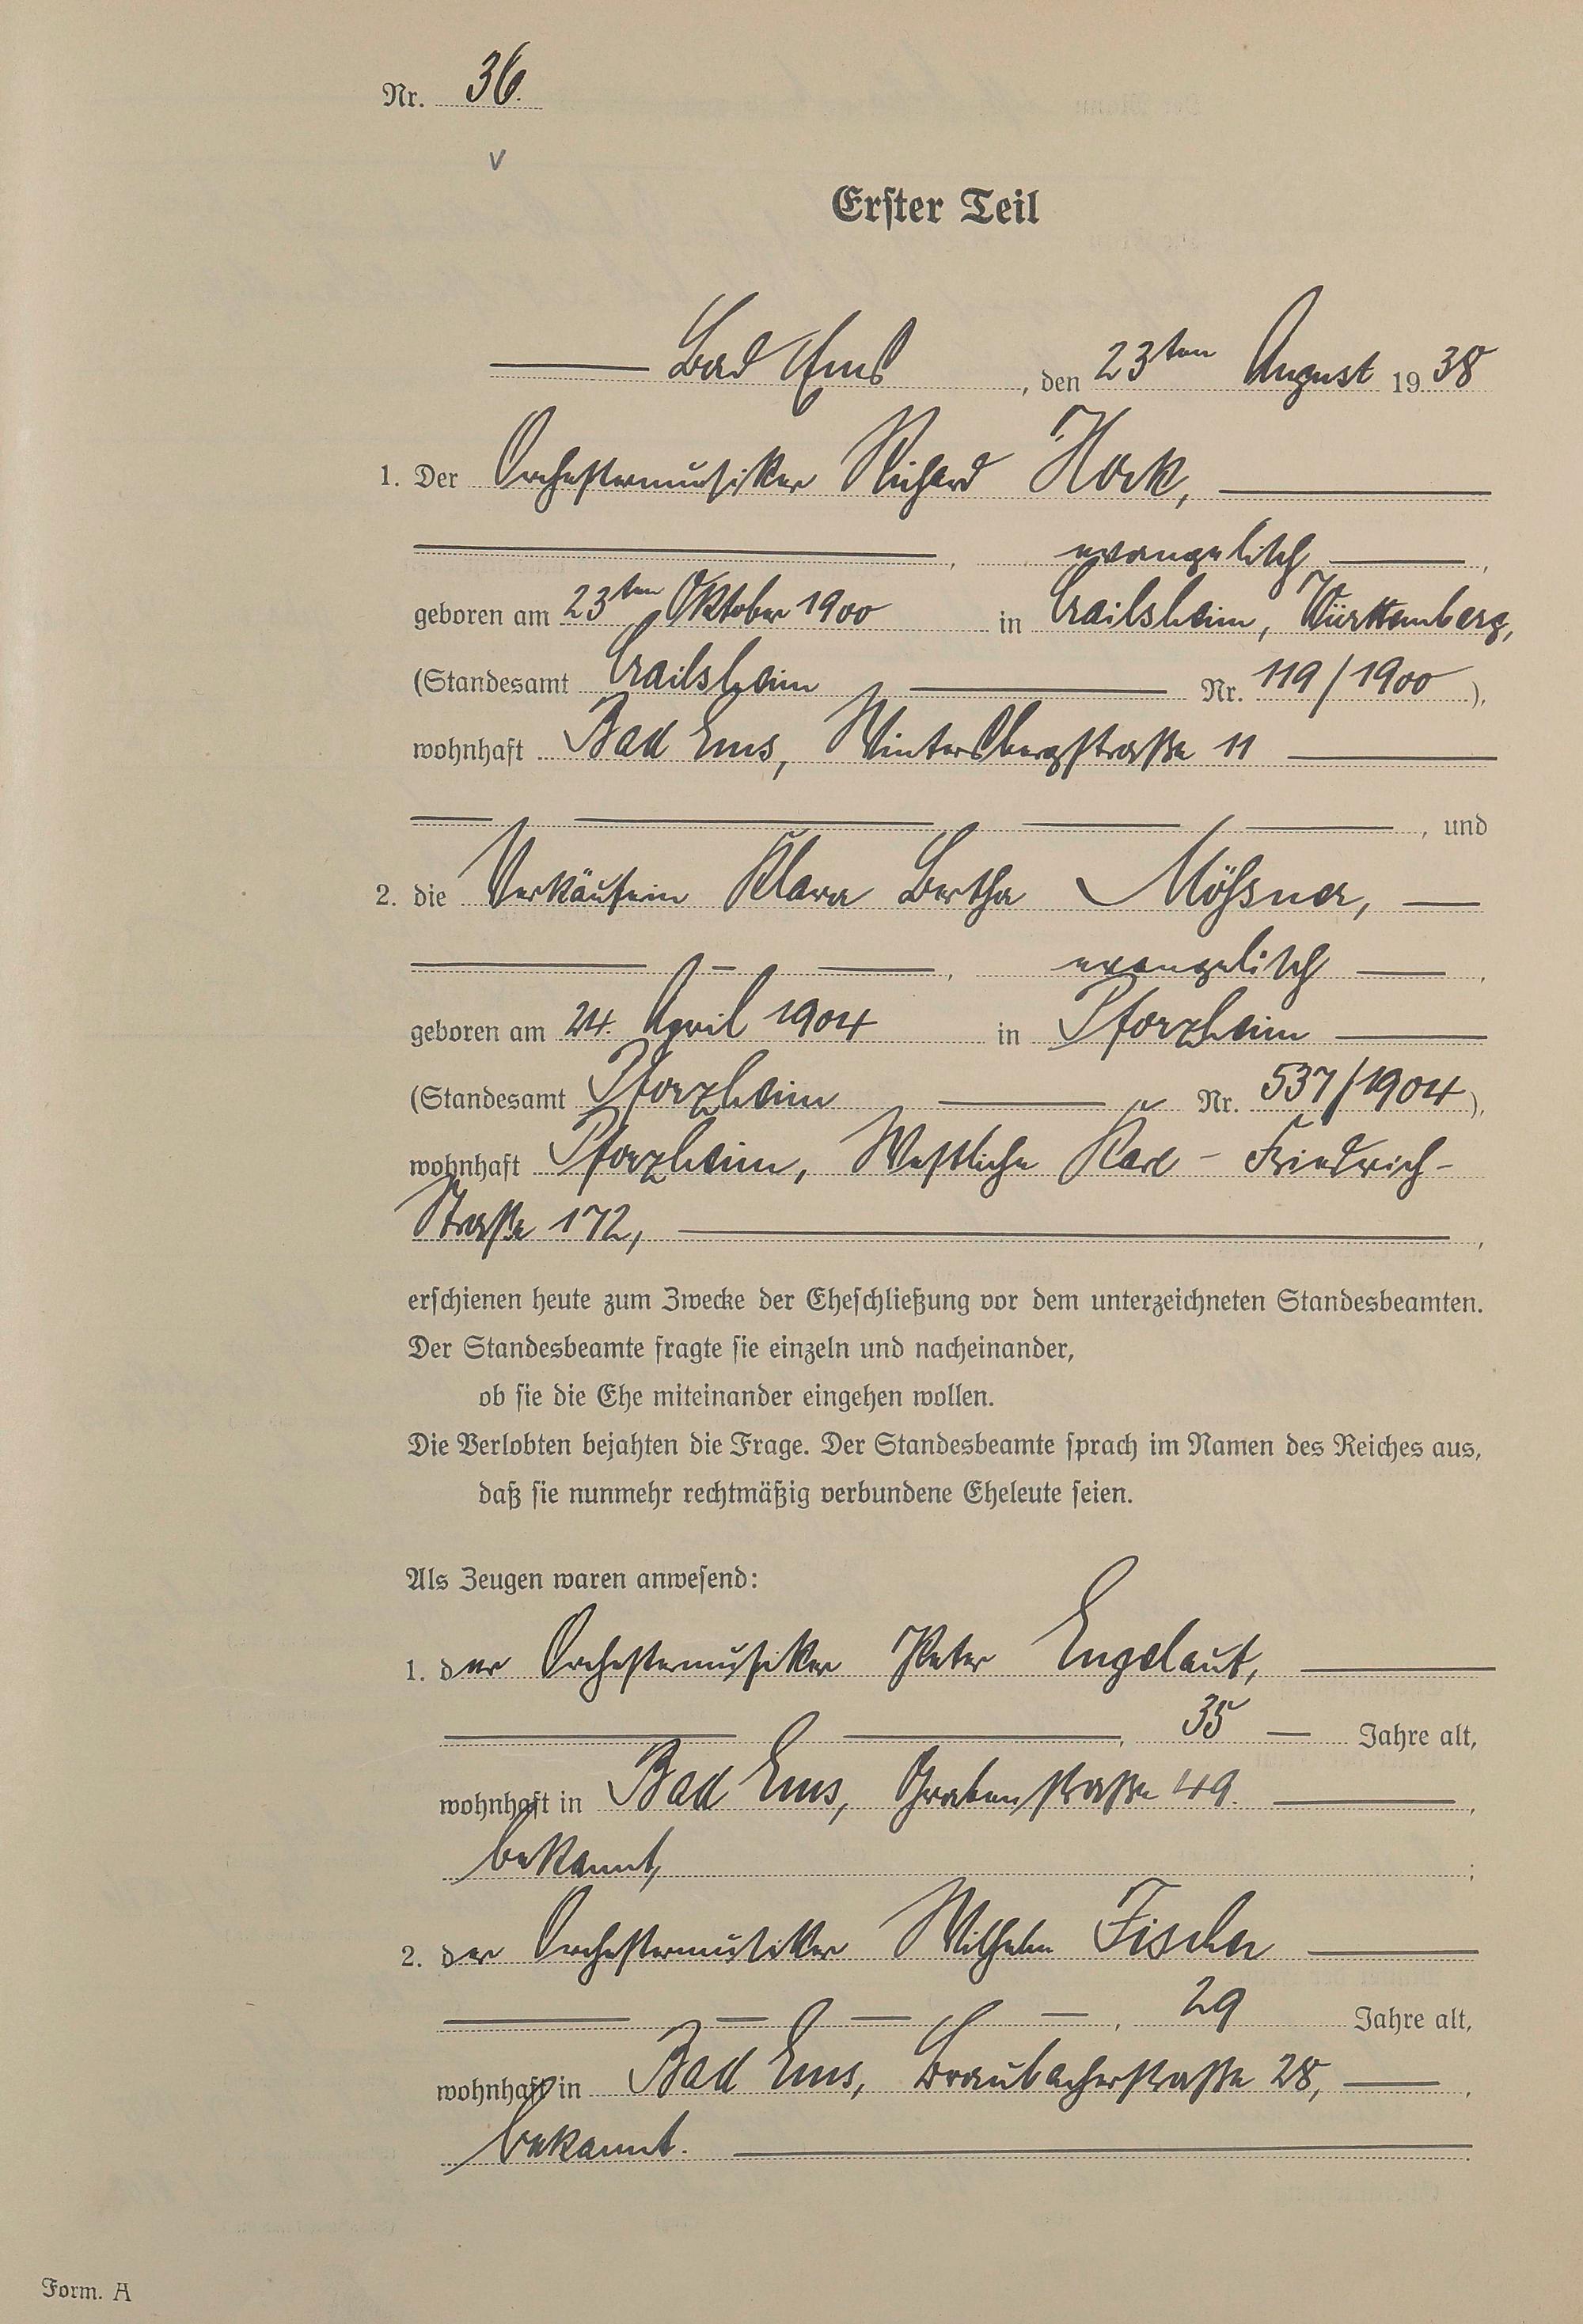 Nr. 36.
v
Erster Teil
Bad Ems, den 23ten August 1938
1. Der Orchestermusiker Richard Hock,
, evangelisch ,
geboren am 23ten Oktober 1900 in Crailsheim, Württemberg,
(Standesamt Crailsheim Nr. 119/1900),
wohnhaft Bad Ems, Wintersbergstraße 11
, und
2. die Verkäuferin Klara Bertha Mößner,
, evangelisch ,
geboren am 24. April 1904 in Pforzheim
(Standesamt Pforzheim Nr. 537/1904),
wohnhaft Pforzheim, Westliche Karl-Friedrich-
Straße 172, ,
erschienen heute zum Zwecke der Eheschließung vor dem unterzeichneten Standesbeamten.
Der Standesbeamte fragte sie einzeln und nacheinander,
ob sie die Ehe miteinander eingehen wollen.
Die Verlobten bejahten die Frage. Der Standesbeamte sprach im Namen des Reiches aus,
daß sie nunmehr rechtmäßig verbundene Eheleute seien.
Als Zeugen waren anwesend:
1. der Orchestermusiker Peter Engelaut,
, 35 Jahre alt,
wohnhaft in Bad Ems, Grabenstraße 49. ,
bekannt, ;
2. der Orchestermusiker Wilhelm Fischer
, 29 Jahre alt,
wohnhaft in Bad Ems, Braubacherstraße 28, ,
bekannt.
Form. A